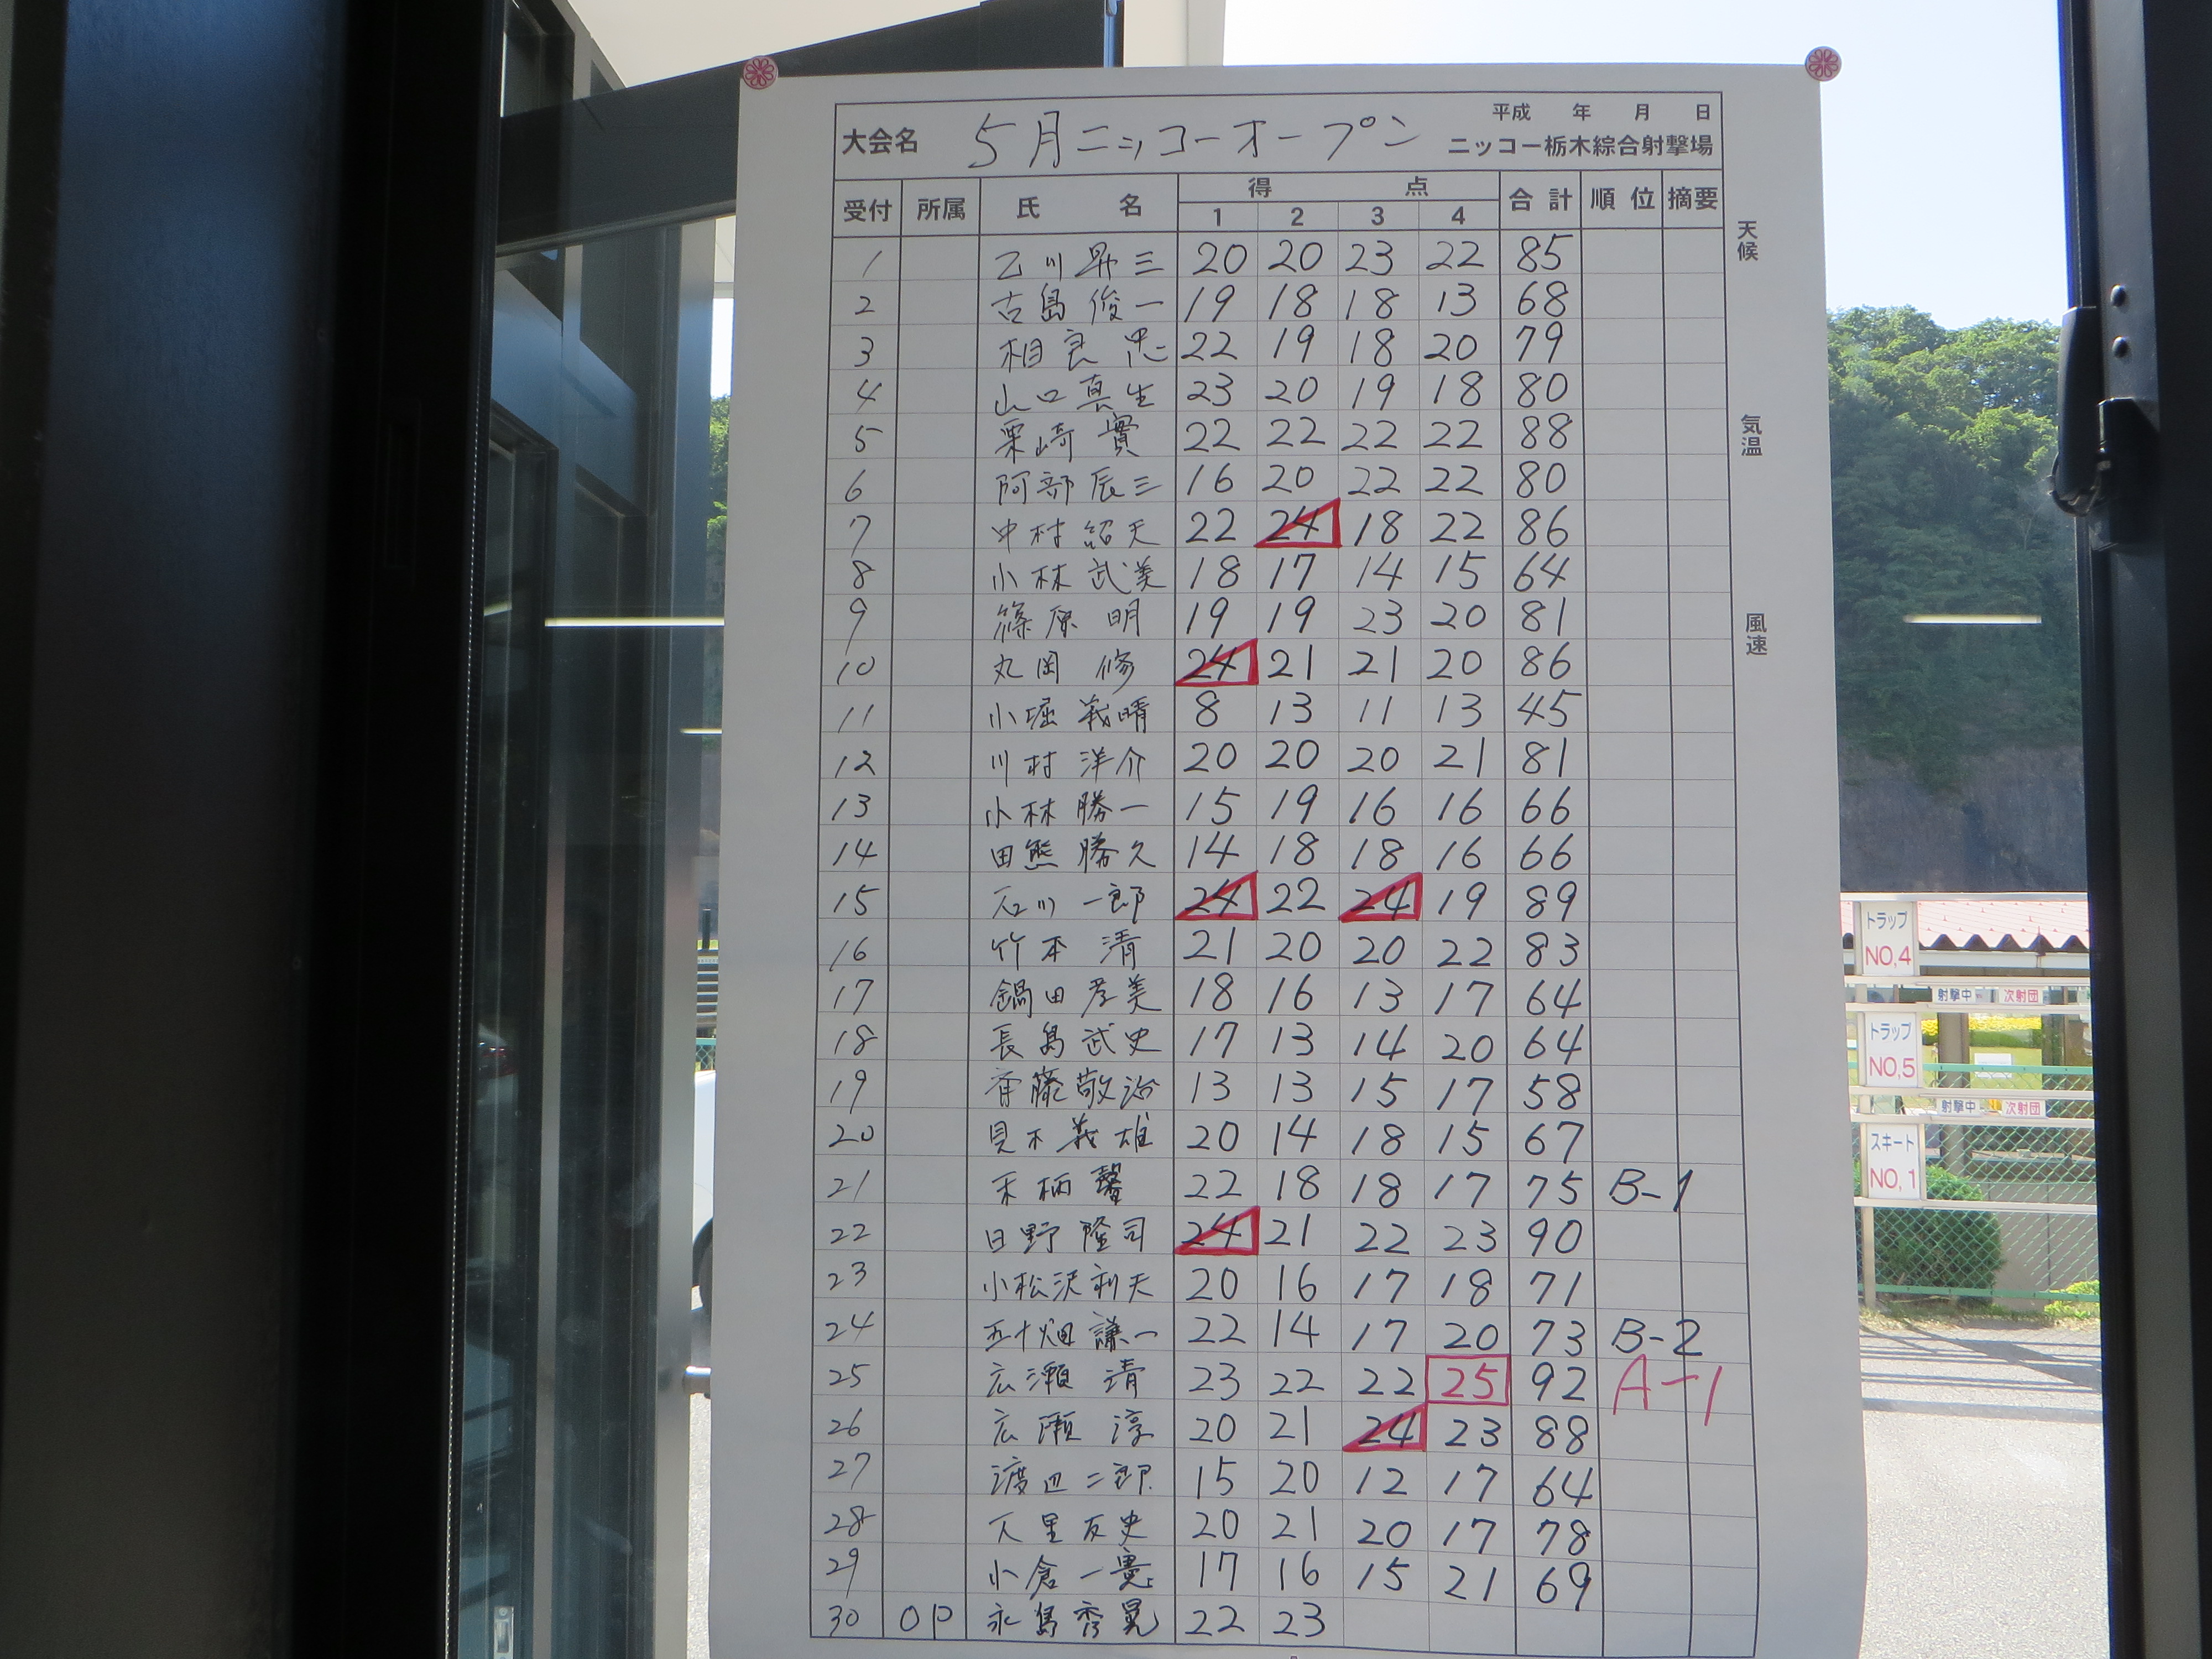 平成 年 月 日
大会名 5月ニッコーオープン ニッコー栃木綜合射撃場
受付 所属 氏 名 得 点 合計 順位 摘要
1 2 3 4
1 乙川昇三 20 20 23 22 85
2 古島俊一 19 18 18 13 68
3 相良忠 22 19 18 20 79
4 山口真生 23 20 19 18 80
5 栗崎實 22 22 22 22 88
6 阿部辰三 16 20 22 22 80
7 中村紹天 22 24 18 22 86
8 小林武美 18 17 14 15 64
9 篠原明 19 19 23 20 81
10 丸岡修 24 21 21 20 86
11 小堀義晴 8 13 11 13 45
12 川村洋介 20 20 20 21 81
13 小林勝一 15 19 16 16 66
14 田熊勝久 14 18 18 16 66
15 石川一郎 24 22 24 19 89
16 竹本清 21 20 20 22 83
17 鍋田孝美 18 16 13 17 64
18 長島武史 17 13 14 20 64
19 斉藤敬治 13 13 15 17 58
20 見木義雄 20 14 18 15 67
21 柄馨 22 18 18 17 75 B-1
22 日野隆司 24 21 22 23 90
23 小松沢利夫 20 16 17 18 71
24 五十畑謙一 22 14 17 20 73 B-2
25 広瀬靖 23 22 22 25 92 A-1
26 広瀬淳 20 21 24 23 88
27 渡辺二郎 15 20 12 17 64
28 里友史 20 21 20 17 78
29 小倉一憲 17 16 15 21 69
30 OP 永島秀晃 22 23
天候
気温
風速
トラップ
NO,4
射撃中 次射団
トラップ
NO,5
射撃中 次射団
スキート
NO,1